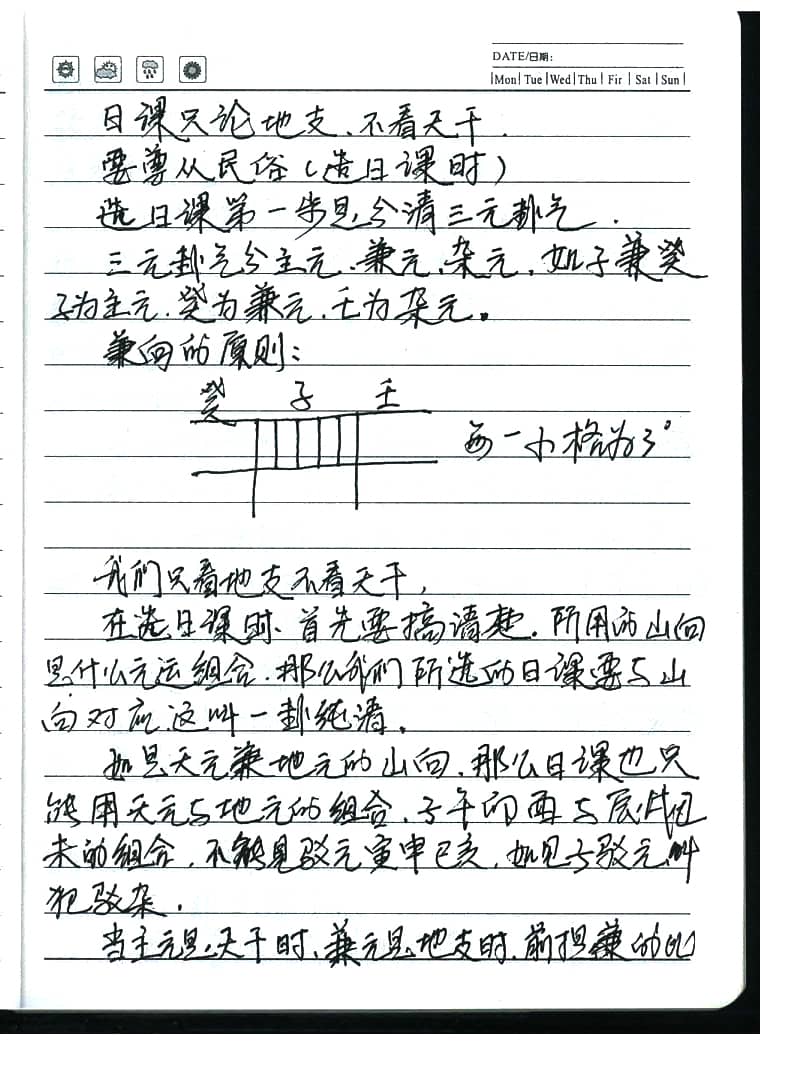 DATE/日期:
Mon Tue Wed Thu Fir Sat Sun
日课只论地支、不看天干.
要尊从民俗(选日课时)
选日课第一步是分清三元卦气.
三元卦气分主元、兼元、杂元, 如子兼癸
子为主元、癸为兼元、壬为杂元。
兼向的原则:
癸 子 壬
每一小格为3°
我们只看地支不看天干,
在选日课时、首先要搞清楚, 所用的山向
是什么元运组合, 那么我们所选的日课要与山
向对应这叫一卦纯清。
如是天元兼地元的山向, 那么日课也只
能用天元与地元的组合, 子午卯酉与辰戌丑
未的组合, 不能见驳元寅申巳亥, 如见与驳元叫
犯驳杂.
当主元是天干时、兼元是地支时, 前担兼的